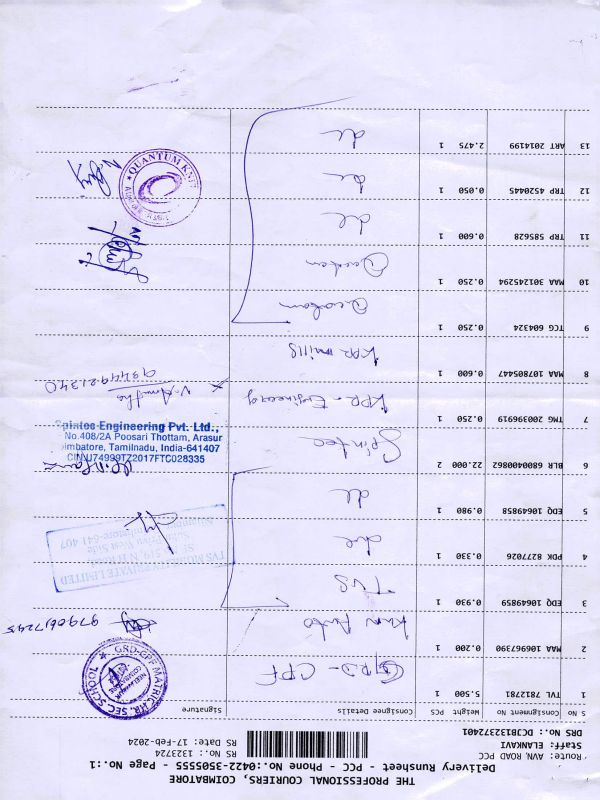 THE PROFESSIONAL COURIERS, COIMBATORE
Delivery Runsheet - PCC - Phone No.:0422-3505555 - Page No.:1
Route: AVN. ROAD PCC
Staff: ELANKAVI
DRS No.: DCJB1322372401
RS No.: 1323724
RS Date: 17-Feb-2024
S No Consignment No Weight PCS Consignee Details Signature
1 TVL 7812781 5.500 1 GRD - CPF
GRD-CPF MATRIC.HR. SEC. SCHOOL
2 MAA 106967390 0.200 1
9790617245
3 EDQ 10649859 0.930 1 TVS
TVS MOBILITY PRIVATE LIMITED
4 PDK 8277026 0.330 1
5 EDQ 10649858 0.980 1
6 BLR 6800400862 22.000 2 Spintec
Spintec Engineering Pvt. Ltd.,
No.408/2A Poosari Thottam, Arasur
Coimbatore, Tamilnadu, India-641407
CIN:U74999TZ2017FTC028335
7 TMG 200396919 0.250 1 KPR - Engineering
V. Amutha
9944921340
8 MAA 107805447 0.600 1 KPR mills
9 TCG 604324 0.250 1
10 MAA 301245294 0.250 1
11 TRP 585628 0.600 1
12 TRP 4520445 0.050 1
QUANTUM KNIT
13 ART 2014199 2.475 1